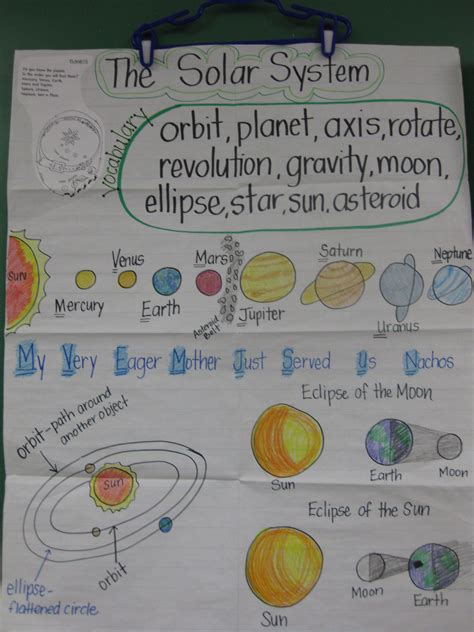 PLANETS
Mercury, Venus, Earth,
Saturn, Uranus,
The Solar System
Vocabulary
orbit, planet, axis, rotate,
revolution, gravity, moon,
ellipse, star, sun, asteroid
Sun
Mercury
Venus
Earth
Mars
Asteroid
Belt
Jupiter
Saturn
Uranus
Neptune
My Very Eager Mother Just Served Us Nachos
orbit-path around
another object
Sun
orbit
ellipse-
flattened circle
Eclipse of the Moon
Sun
Earth
Moon
Eclipse of the Sun
Sun
Moon
Earth